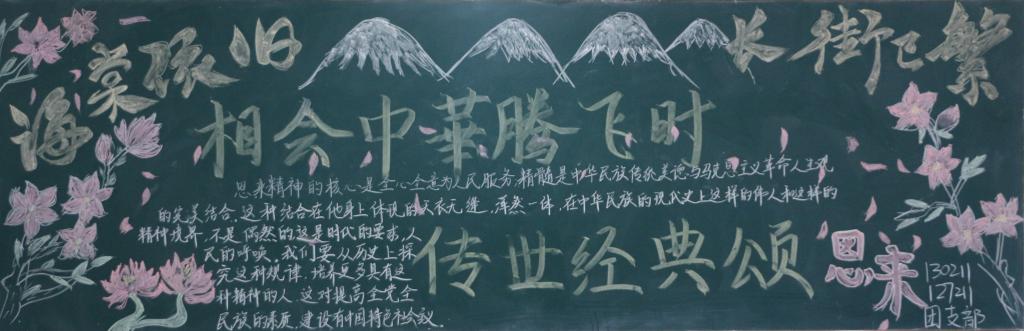 海棠依旧
长街已繁
相会中華腾飞时
恩来精神的核心是全心全意为人民服务,精髓是中华民族传统美德与马克思主义革命人生观
的完美结合.这种结合在他身上体现的天衣无缝,浑然一体,在中华民族的现代史上这样的伟人和这样的
精神境界.不是偶然的这是时代的要求,人
民的呼唤.我们要从历史上探
究这种规律.培养更多具有这
种精神的人.这对提高全党全
民族的素质.建设有中国特色社会议.
传世经典颂
恩来
130211
121211
团支部